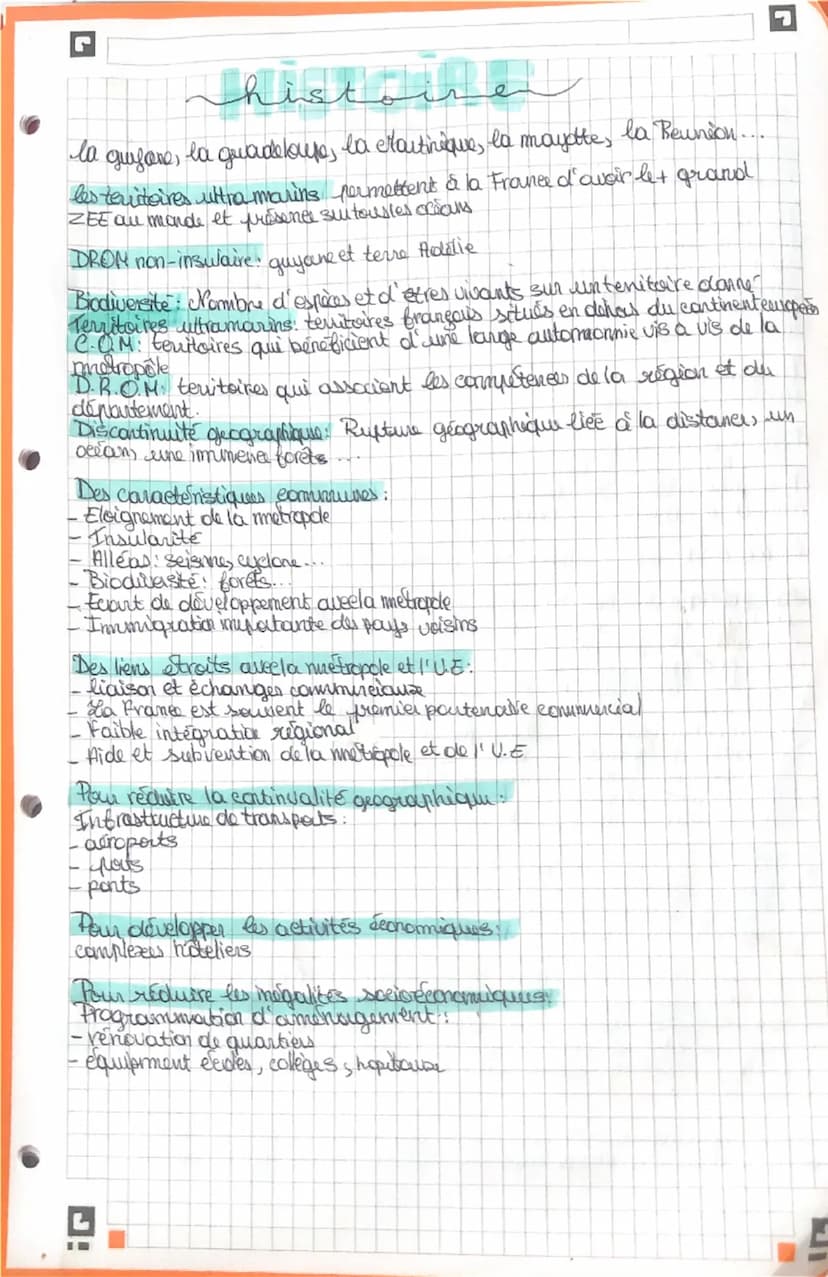 HISTOIRE
histoire
la guyane, la guadeloupe, la Martinique, la mayotte, la Reunion...
les territoires ultra marins permettent à la France d'avoir le + grand
ZEE au monde et présence sur tous les océans
DROM non-insulaire: guyane et terre Adélie
Biodiversité: Nombre d'espèces et d'êtres vivants sur un territoire donné
Territoires ultramarins: territoires français situés en dehors du continent européen
C.O.M: territoires qui bénéficient d'une large automonnie vis à vis de la
métropôle
D.R.O.M: territoires qui associent les compétences de la région et du
département.
Discontinuité géographique: Rupture géographique liée à la distance, un
océan, une immense forêts...
Des caractéristiques communes:
- Eloignement de la métropole
- Insularité
- Alléas: seisme, cyclone...
- Biodiversité: forêts...
- Ecart de développement avec la métropole
- Immigration importante des pays voisins
Des liens étroits avec la métropole et l'U.E:
- liaison et échanges commerciaux
- La France est souvent le premier partenaire commercial
- Faible intégration régional
- Aide et subvention de la métropole et de l'U.E
Pour réduire la continualité géographique:
Infrastructure de transports:
- aéroports
- ports
- ponts
Pour développer les activités économiques:
complexes hôteliers
Pour réduire les inégalités socioéconomiques:
Programmation d'aménagement:
- rénovation de quartiers
- équipement écoles, collèges, hopitaux